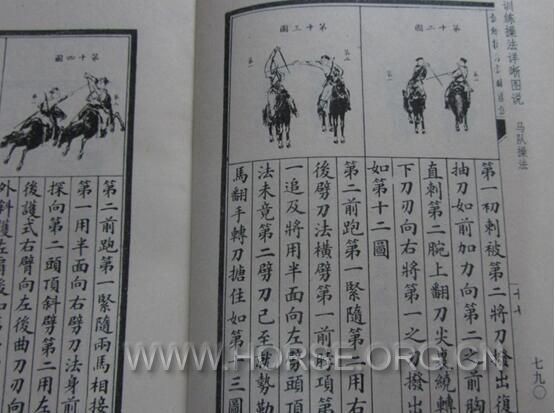 训练操法详晰图说
马队操法
七九〇
第十二圖
第一初刺被第二將刀撥出復
抽刀如前加刀向第一之前胸
直刺第二腕上翻刀尖裹繞轉
下刀刃向右將第一之刀撥出
如第十二圖
第十三圖
第二前跑第一緊隨第二用右
後劈刀法橫劈第一前項第
一追及將用半面向左劈頭頂
法未竟第二劈刀已至趁勢勒
馬翻手轉刀搪住如第十三圖
第十四圖
第二前跑第一緊隨兩馬相接
第一用半面向右劈刀法身前
探向第二頭頂斜劈第二用左
後護式右臂向左後曲刀刃向
外斜護左肩
WWW.HORSE.ORG.CN